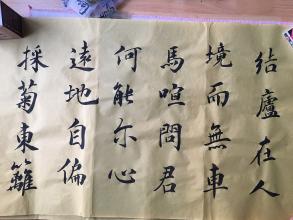 結廬在人
境而無車
馬喧問君
何能尔心
遠地自偏
採菊東籬